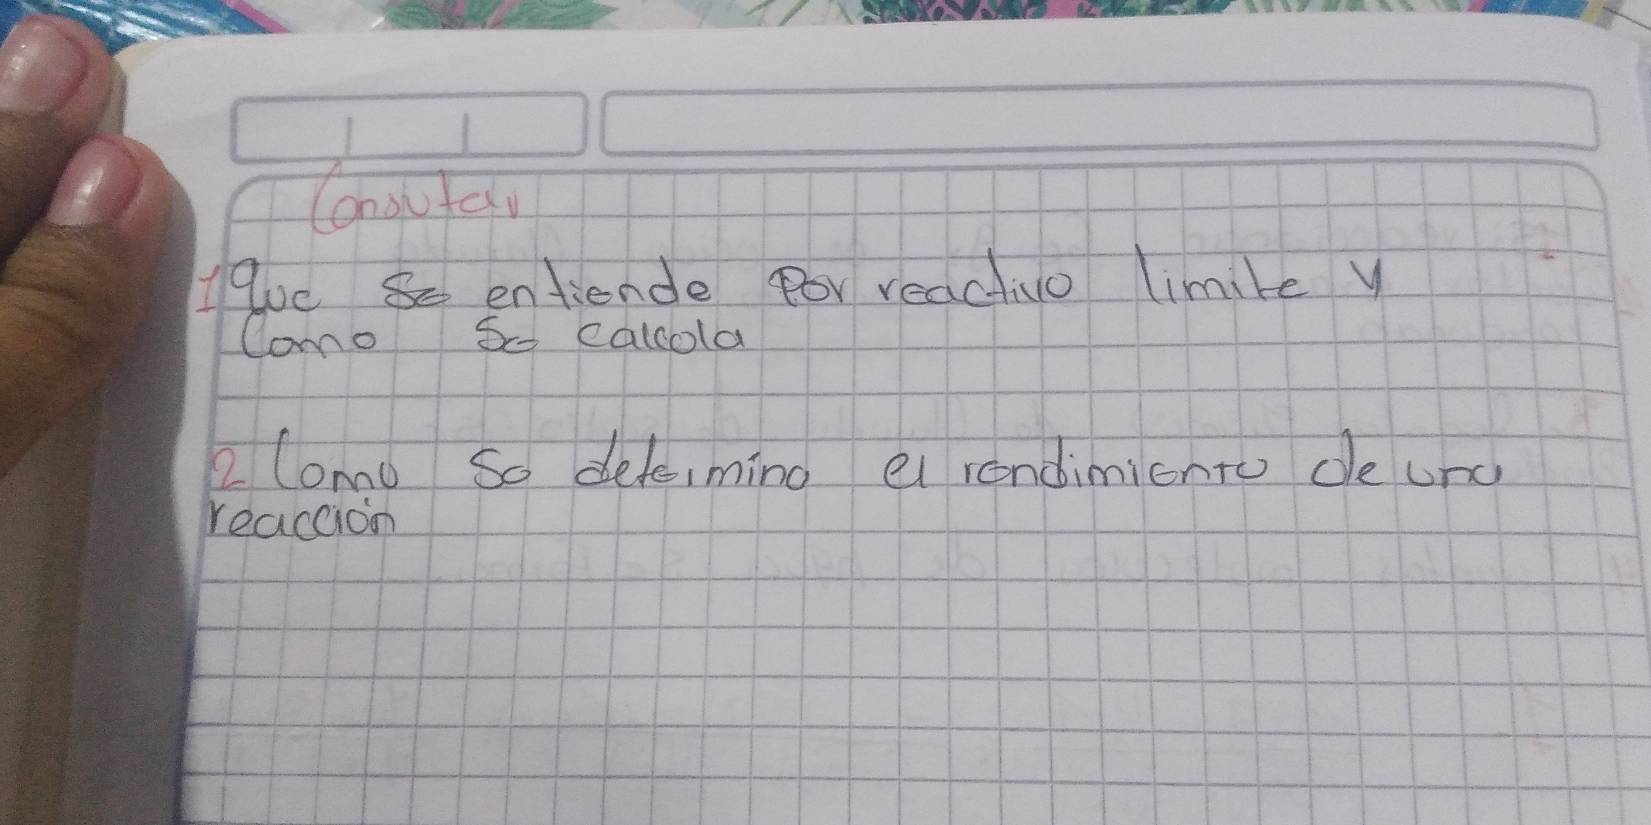 Consutar
1 Que se entiende Por reactivo limite y
Como Se calcola
2 Como Se determina el rendimiento de una
reacción